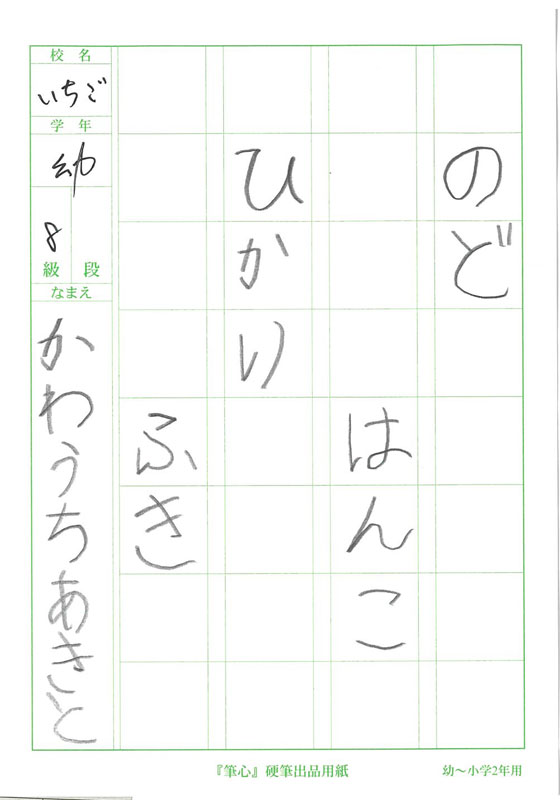 のど
はんこ
ひかり
ふき
校名
いちご
学年
幼
8
級 段
なまえ
かわうちあきと
『筆心』硬筆出品用紙
幼〜小学2年用